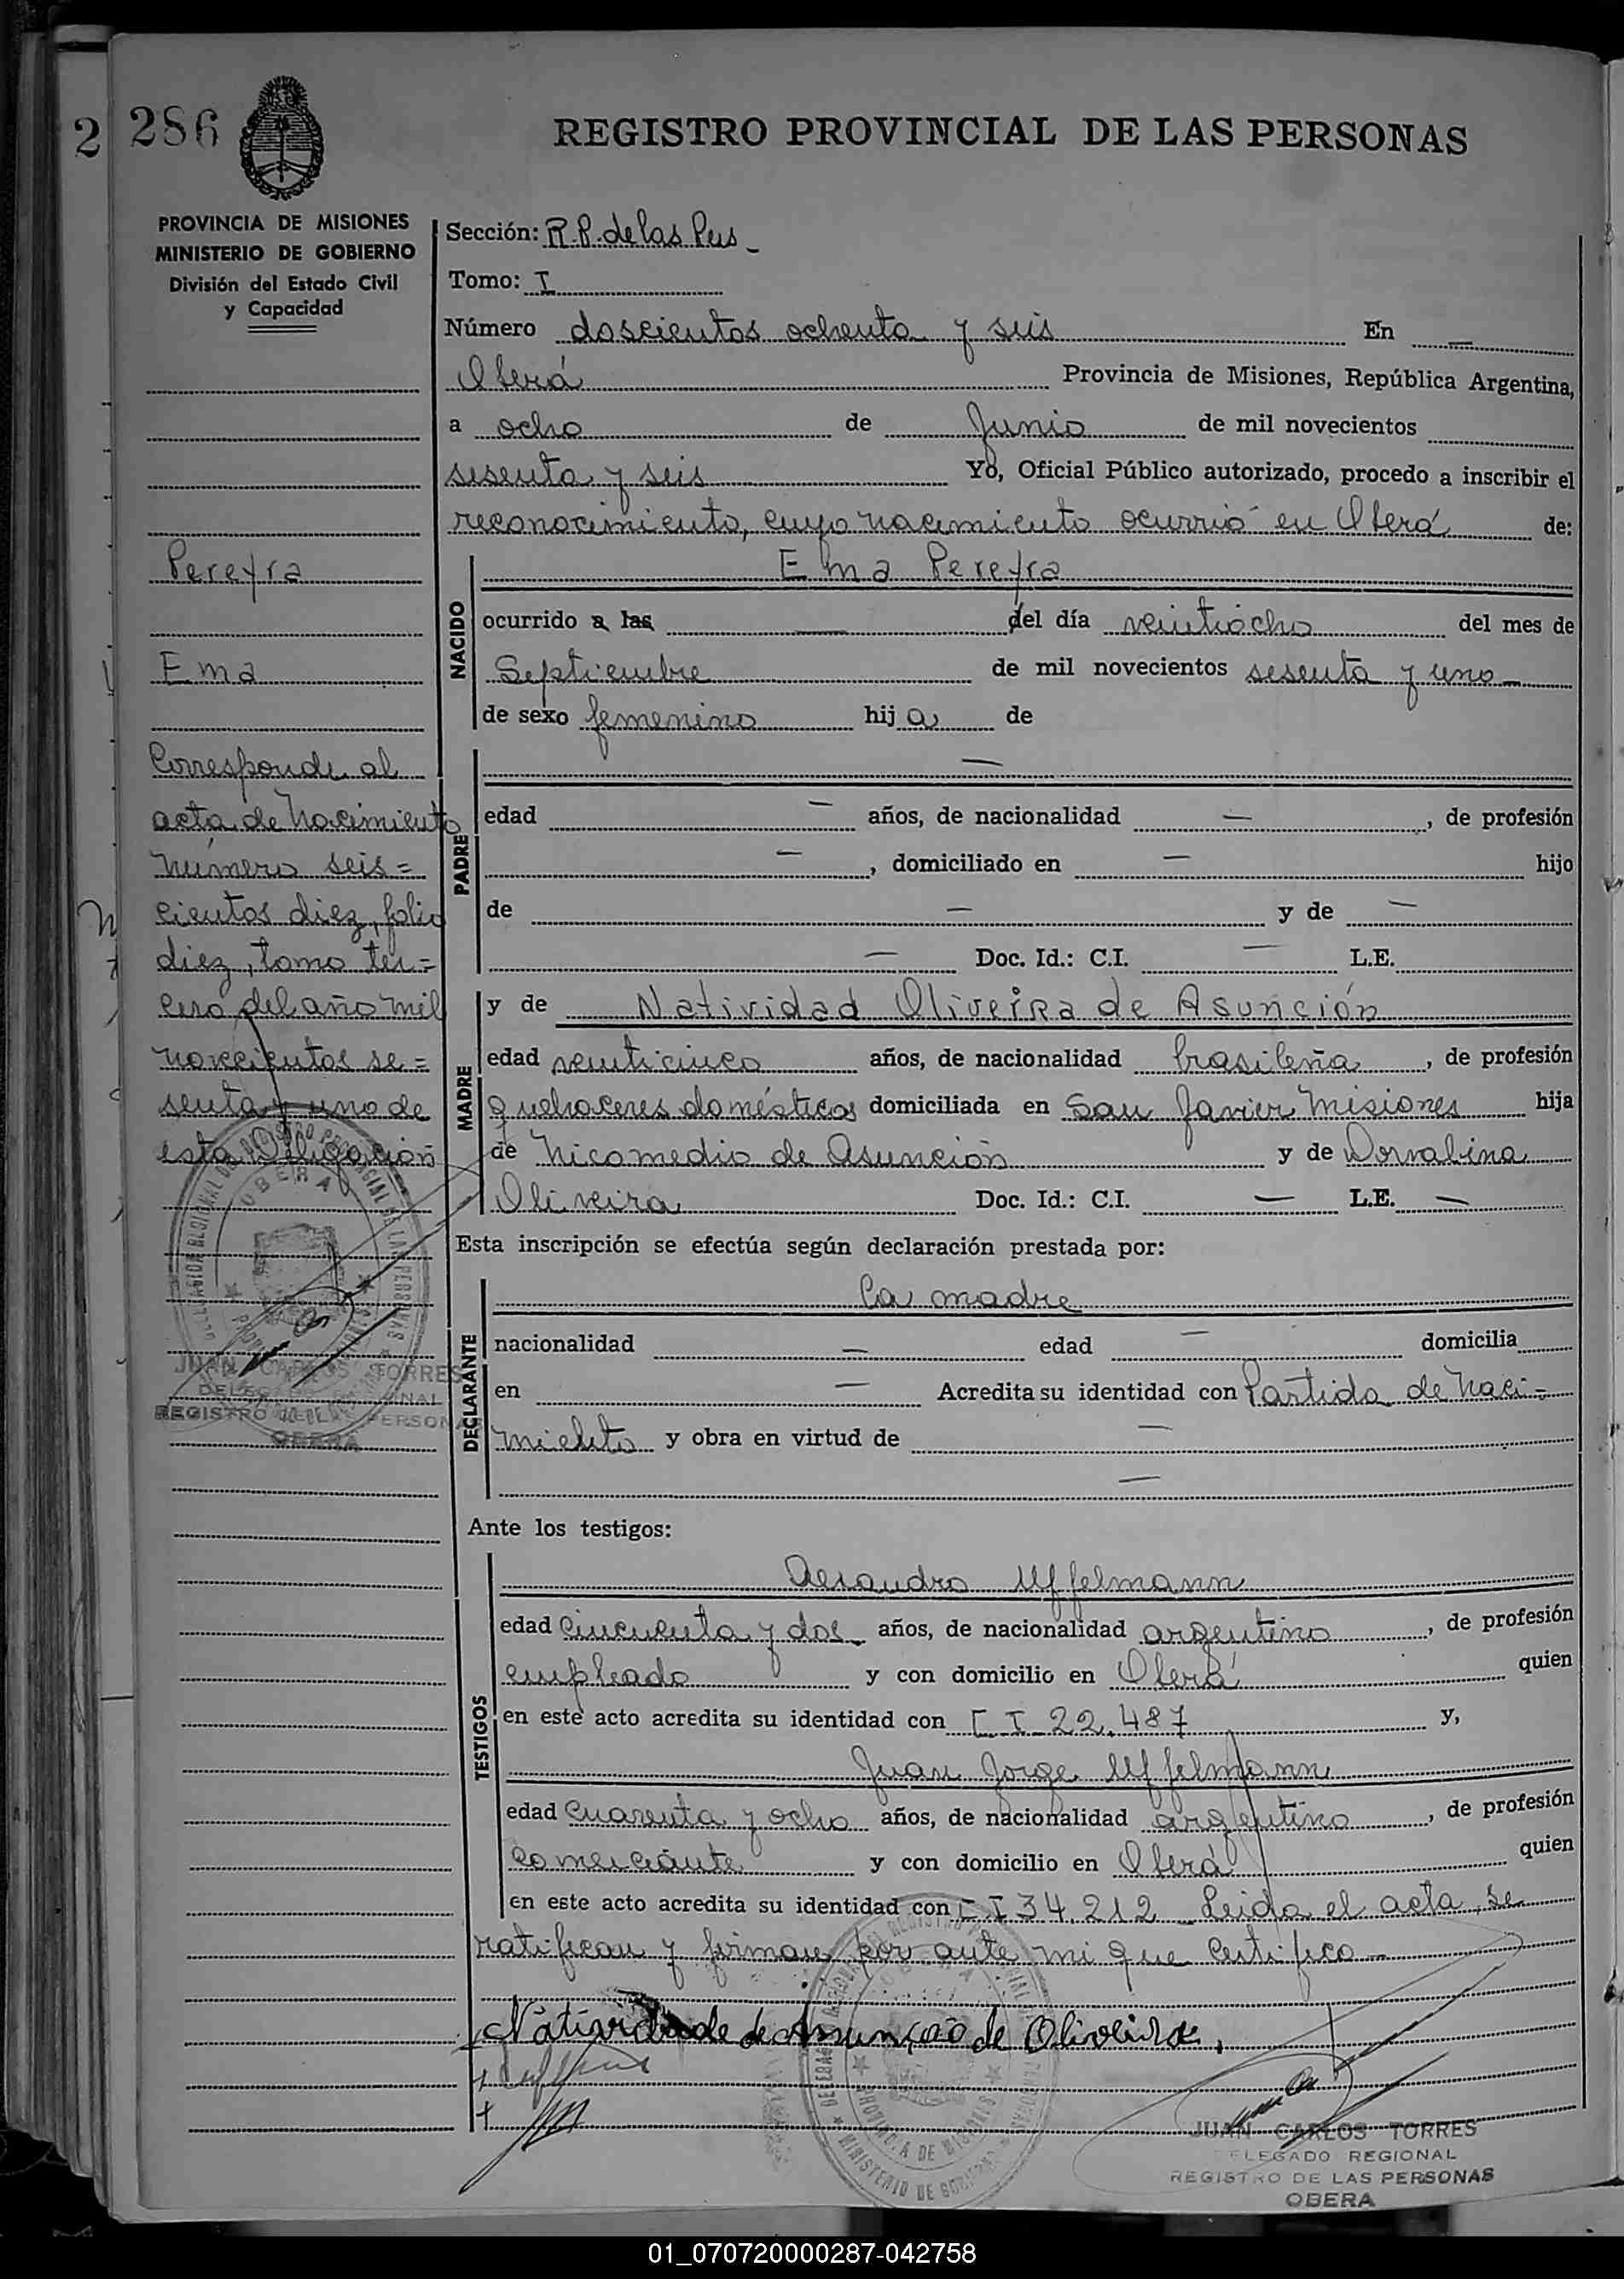 2 286
REGISTRO PROVINCIAL DE LAS PERSONAS
PROVINCIA DE MISIONES
MINISTERIO DE GOBIERNO
División del Estado Civil
y Capacidad
Pereyra
Ema
Corresponde al
acta de Nacimiento
número seis=
cientos diez, folio
diez, tomo ter=
cero del año mil
novecientos se=
senta y uno de
esta Delegación
OBERA
JUAN CARLOS TORRES
REGISTRO DE LAS PERSONAS
OBERA
Sección: R.P. de las Pers -
Tomo: I
Número doscientos ochenta y seis En —
Oberá Provincia de Misiones, República Argentina,
a ocho de Junio de mil novecientos
sesenta y seis Yo, Oficial Público autorizado, procedo a inscribir el
reconocimiento, cuyo nacimiento ocurrió en Oberá de:
NACIDO
Ema Pereyra
ocurrido a las — del día veintiocho del mes de
Septiembre de mil novecientos sesenta y uno —
de sexo femenino hij a de
PADRE
—
edad — años, de nacionalidad —, de profesión
—, domiciliado en — hijo
de — y de —
— Doc. Id.: C.I. — L.E.
MADRE
y de Natividad Oliveira de Asunción
edad veinticinco años, de nacionalidad brasileña, de profesión
quehaceres domésticos domiciliada en San Javier Misiones hija
de Nicomedio de Asunción y de Dorvalina
Oliveira Doc. Id.: C.I. — L.E. —
Esta inscripción se efectúa según declaración prestada por:
DECLARANTE
La madre
nacionalidad — edad — domicilia
en — Acredita su identidad con Partida de Naci=
miento y obra en virtud de —
—
Ante los testigos:
TESTIGOS
Uffelmann
edad cincuenta y dos años, de nacionalidad argentino, de profesión
empleado y con domicilio en Oberá quien
en este acto acredita su identidad con C I 22.487 y,
Juan Jorge Uffelmann
edad cuarenta y ocho años, de nacionalidad argentino, de profesión
comerciante y con domicilio en Oberá quien
en este acto acredita su identidad con C I 34.212 Leida el acta, se
ratifican y firman por ante mi que certifico —
Natividade de Assunção de Oliveira.
JUAN CARLOS TORRES
DELEGADO REGIONAL
REGISTRO DE LAS PERSONAS
OBERA
PROVINCIA DE MISIONES
MINISTERIO DE GOBIERNO
01_070720000287-042758